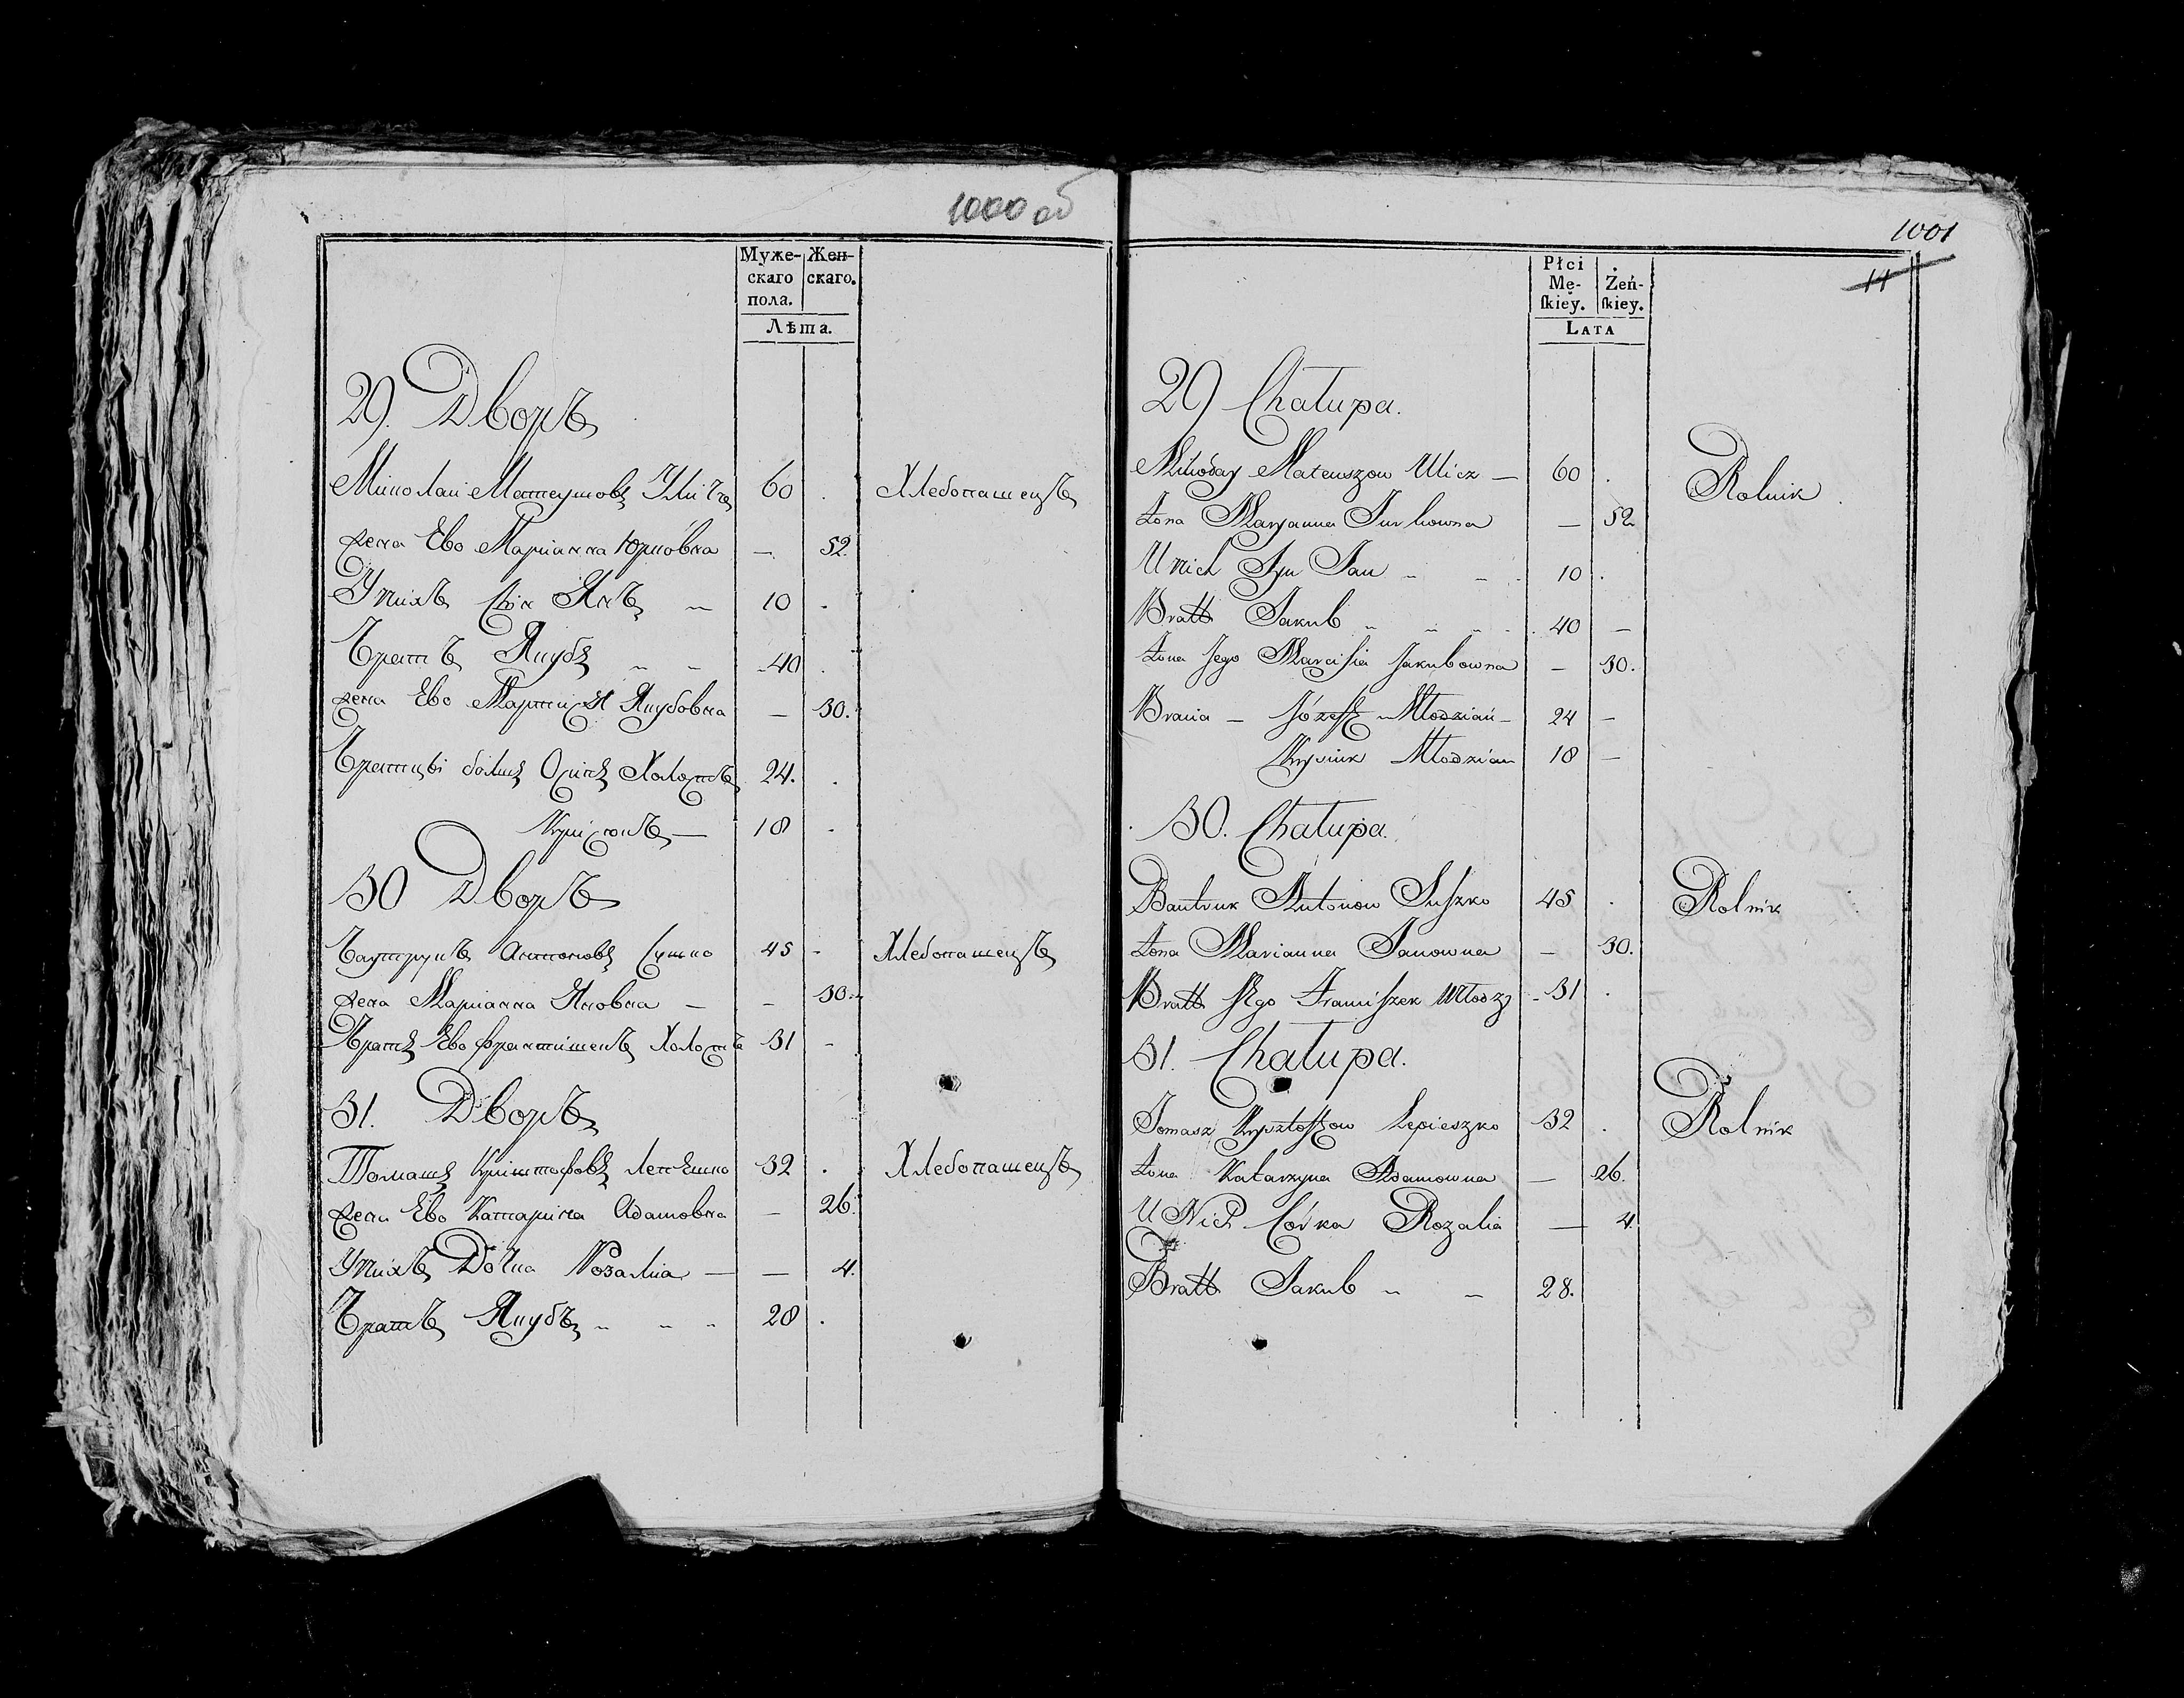 1000 об
Муже-
скаго
пола.
Жен-
скаго.
Лѣта.
29. Дворъ
Миколай Матеушовъ Уличъ 60 . Хлебопашецъ
жена Ево Маріанна Юрковна — 52.
У нихъ Сын Янъ „ 10 .
Братъ Якубъ „ „ 40 .
жена Ево Якубовна — 30.
Осипъ Холостъ 24. .
18 .
30 Дворъ
Баутрукъ Антоновъ Сушко 45 - Хлебопашецъ
жена Маріанна Яновна — - 30.
Братъ Ево Франтишекъ Холостъ 31 -
31. Дворъ
Томашъ Криштофовъ Лепешко 32 . Хлебопашецъ
жена Ево Катарина Адамовна — 26.
У нихъ Дочка Розалиа — — 4.
Братъ Якубъ „ „ „ 28 .
1001
11
Płci
Mę-
ſkiey.
Żeń-
ſkiey.
LATA
29 Chałupa.
Mikołay Mateuszow Ulicz — 60 . Rolnik
Żona Maryanna Jurkowna — 52.
U Nich Syn Jan „ „ 10 .
Bratt Jakub „ „ „ 40 —
Żona Jego Jakubowna — 30.
Bracia — Józeff Młodzian 24 —
Młodzian 18 —
30. Chałupa.
Bautruk Antonow Suszko 45 . Rolnik
Żona Marianna Janowna — 30.
Bratt Jego Franciszek Młodz 31 .
31. Chałupa.
Tomasz Krysztoffow Lepieszko 32 . Rolnik
Żona Katarzyna Adamowna — 26.
U Nich Córka Rozalia — 4.
Bratt Jakub „ — 28.